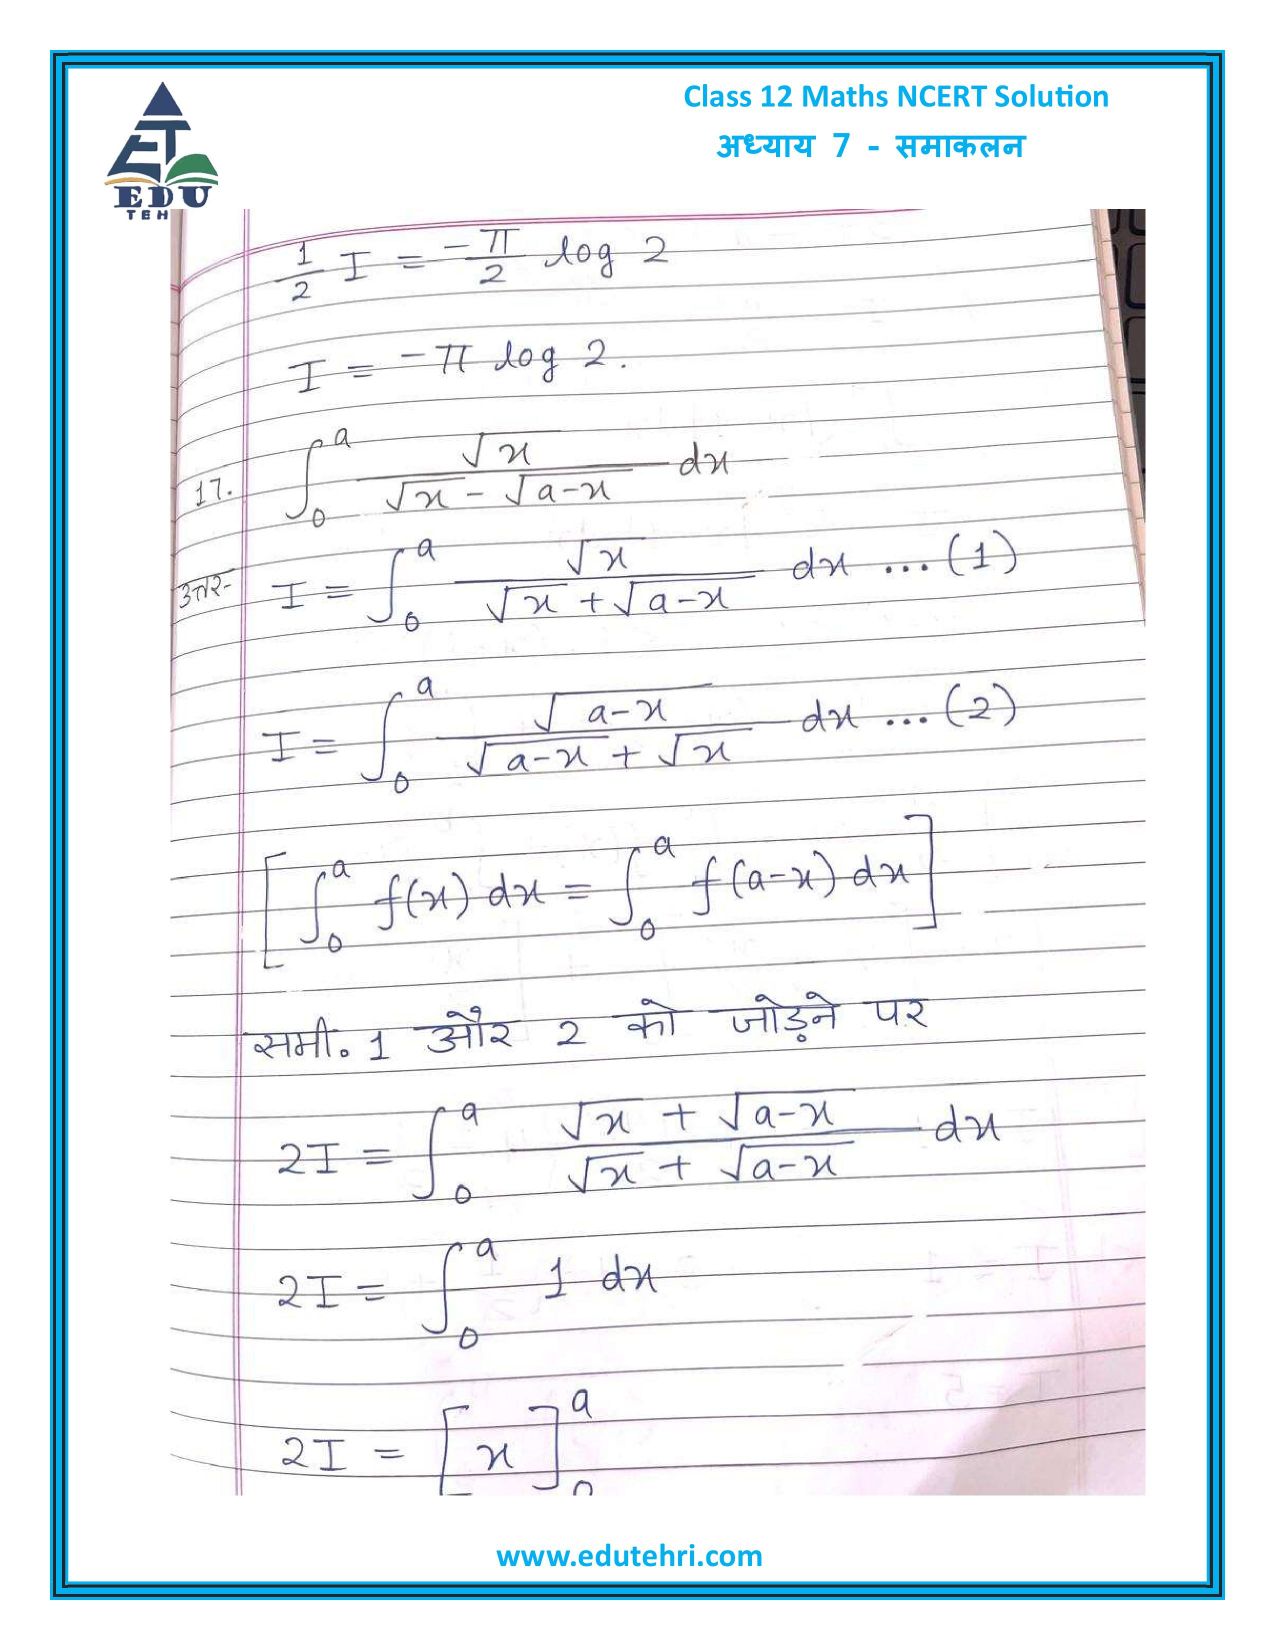 Class 12 Maths NCERT Solution
अध्याय 7 - समाकलन
ET
EDU
TEH
1/2 I = -π/2 log 2
I = -π log 2.
17. ∫₀ᵃ √x / (√x - √(a-x)) dx
उत्तर- I = ∫₀ᵃ √x / (√x + √(a-x)) dx ...(1)
I = ∫₀ᵃ √(a-x) / (√(a-x) + √x) dx ...(2)
[∫₀ᵃ f(x) dx = ∫₀ᵃ f(a-x) dx]
समी. 1 और 2 को जोड़ने पर
2I = ∫₀ᵃ (√x + √(a-x)) / (√x + √(a-x)) dx
2I = ∫₀ᵃ 1 dx
2I = [x]₀ᵃ
www.edutehri.com